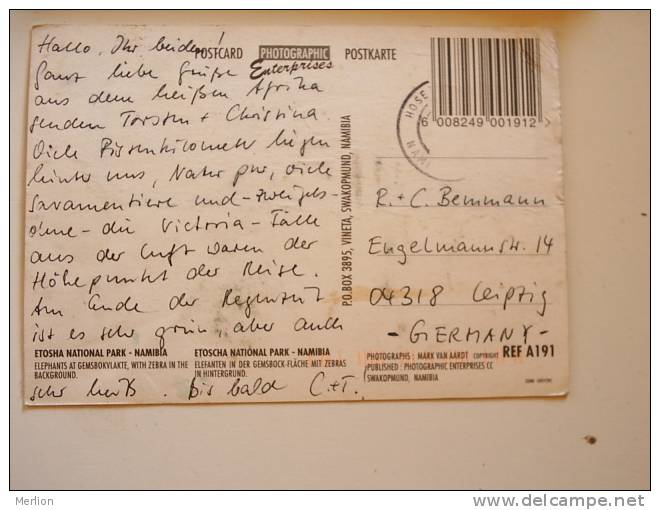 Hallo, Ihr beiden!
Ganz liebe Grüße
aus dem heißen Afrika
senden Torsten + Christina
Viele Pistenkilometer liegen
hinter uns, Natur pur, viele
Savannentiere und - zweifels-
ohne - die Victoria-Fälle
aus der Luft waren der
Höhepunkt der Reise.
Am Ende der Regenzeit
ist es sehr grün, aber auch
sehr heiß. Bis bald C.+T.
POSTCARD PHOTOGRAPHIC POSTKARTE
Enterprises
6 008249 001912
HOSE
NAMI
P.O.BOX 3895, VINETA, SWAKOPMUND, NAMIBIA
R.+C. Bemmann
Engelmannstr. 14
04318 Leipzig
- GERMANY -
ETOSHA NATIONAL PARK - NAMIBIA
ELEPHANTS AT GEMSBOKVLAKTE, WITH ZEBRA IN THE
BACKGROUND.
ETOSCHA NATIONAL PARK - NAMIBIA
ELEFANTEN IN DER GEMSBOCK-FLÄCHE MIT ZEBRAS
IN HINTERGRUND.
PHOTOGRAPHS : MARK VAN AARDT COPYRIGHT REF A191
PUBLISHED : PHOTOGRAPHIC ENTERPRISES CC
SWAKOPMUND, NAMIBIA
Merlion
http://www.delcampe.net